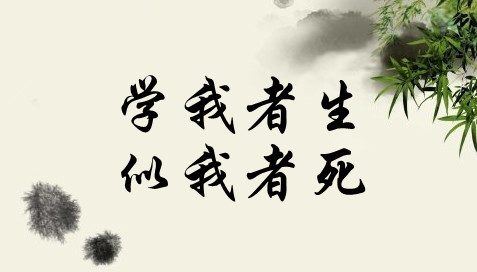 学我者生
似我者死